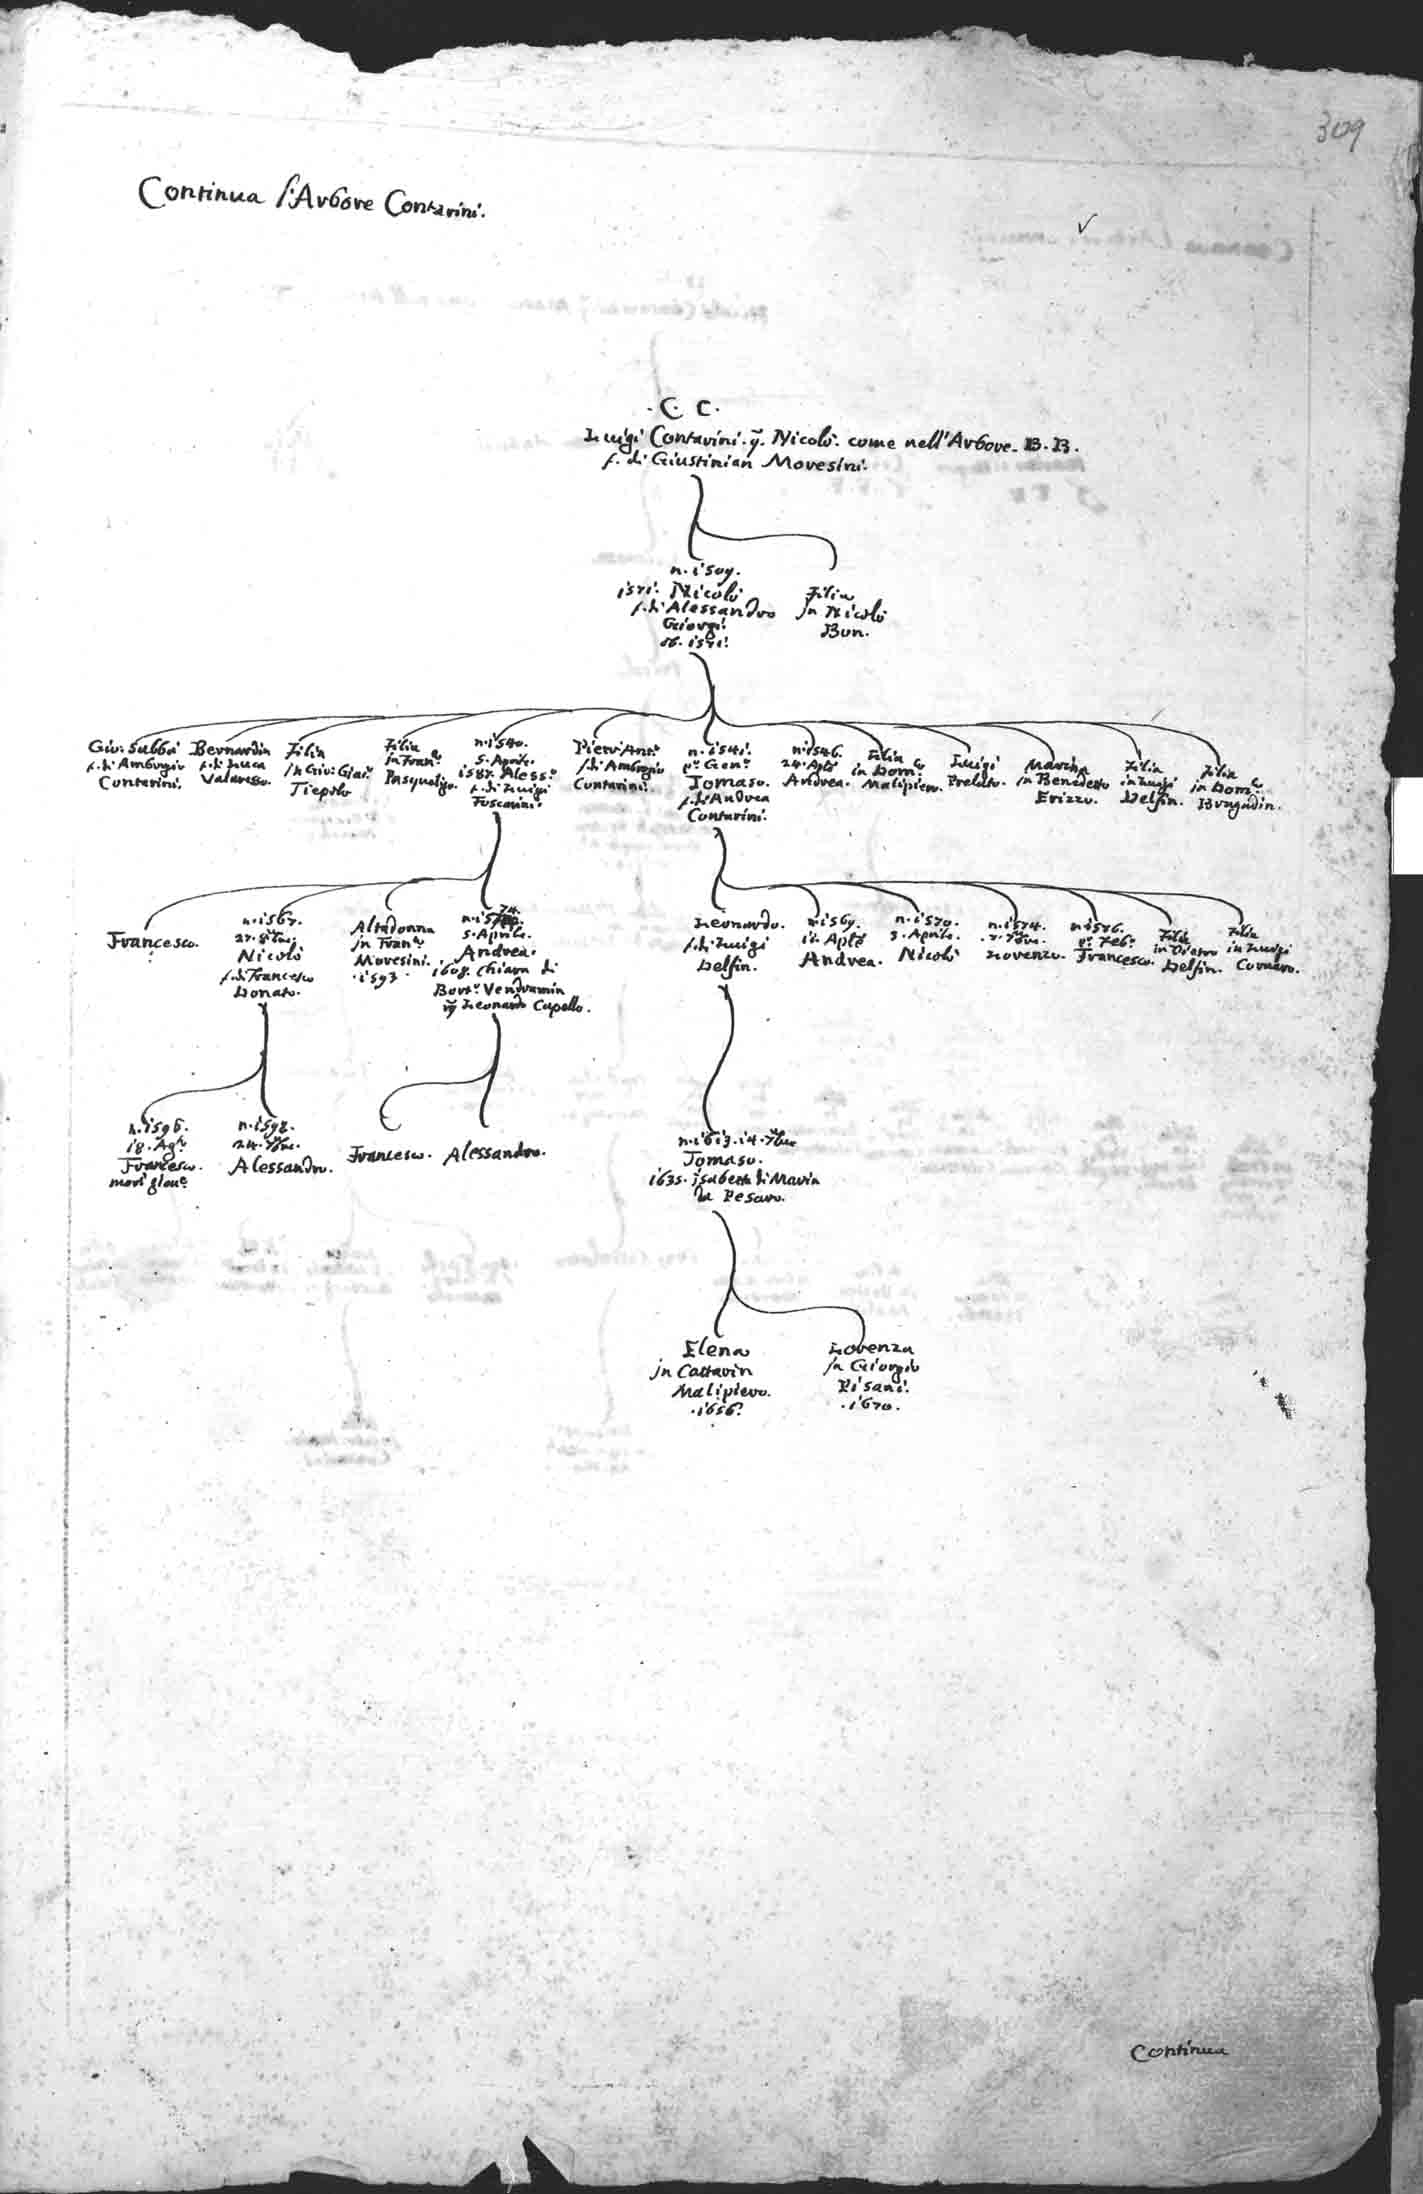 309
Continua l'Arbore Contarini.
. C. C.
Luigi Contarini. q. Nicolò. come nell'Arbore. B. B.
f. di Giustinian Moresini.
n. i509.
i5 Nicolò
f. di Alessandro
Giorgi.
ob. i5
Filia
in Nicolò
Bon.
Gio: Sabba
f. di Ambrogio
Contarini.
Bernardin
f. di Luca
Valaresso.
Filia
in Gio: Giac.º
Tiepolo
Filia
in Fran.º
Pasqualigo.
n. i540.
5. Aprile.
i587. Aless.º
f. di Luigi
Foscarini.
Pier'Ant.º
f. di Ambrogio
Contarini.
n. i54i.
p.º Gen.º
Tomaso.
f. di Andrea
Contarini.
n. i546.
24. Aple
Andrea.
Filia
in Dom.º
Malipiero.
Luigi
Prelato.
Marina
in Benedetto
Erizzo.
Filia
in Luigi
Delfin.
Filia
in Dom.º
Bragadin.
Francesco.
n. i567.
27. 8bre
Nicolò
f. di Francesco
Donato.
Altadonna
in Fran.º
Moresini.
. i593.
n. i574.
5. Aprile.
Andrea.
i608. Chiara di
Bort.º Vendramin
Leonardo Capello.
Leonardo.
f. di Luigi
Delfin.
n. i569.
ii. Aple
Andrea.
n. i570.
3. Aprile.
Nicolò
n. i574.
7bre.
Lorenzo.
n. i576.
p.º Feb.º
Francesco.
Filia
in Pietro
Delfin.
Filia
in Luigi
Cornaro.
n. i596.
i8. Ag.º
Francesco.
morì giov.e
n. i598.
24. 7bre.
Alessandro.
Francesco.
Alessandro.
n. i6i3. i4. 7bre
Tomaso.
i635. isabetta di Marin
da Pesaro.
Elena
in Cattarin
Malipiero.
. i656.
Lorenza
in Giorgio
Pisani.
. i670.
Continua